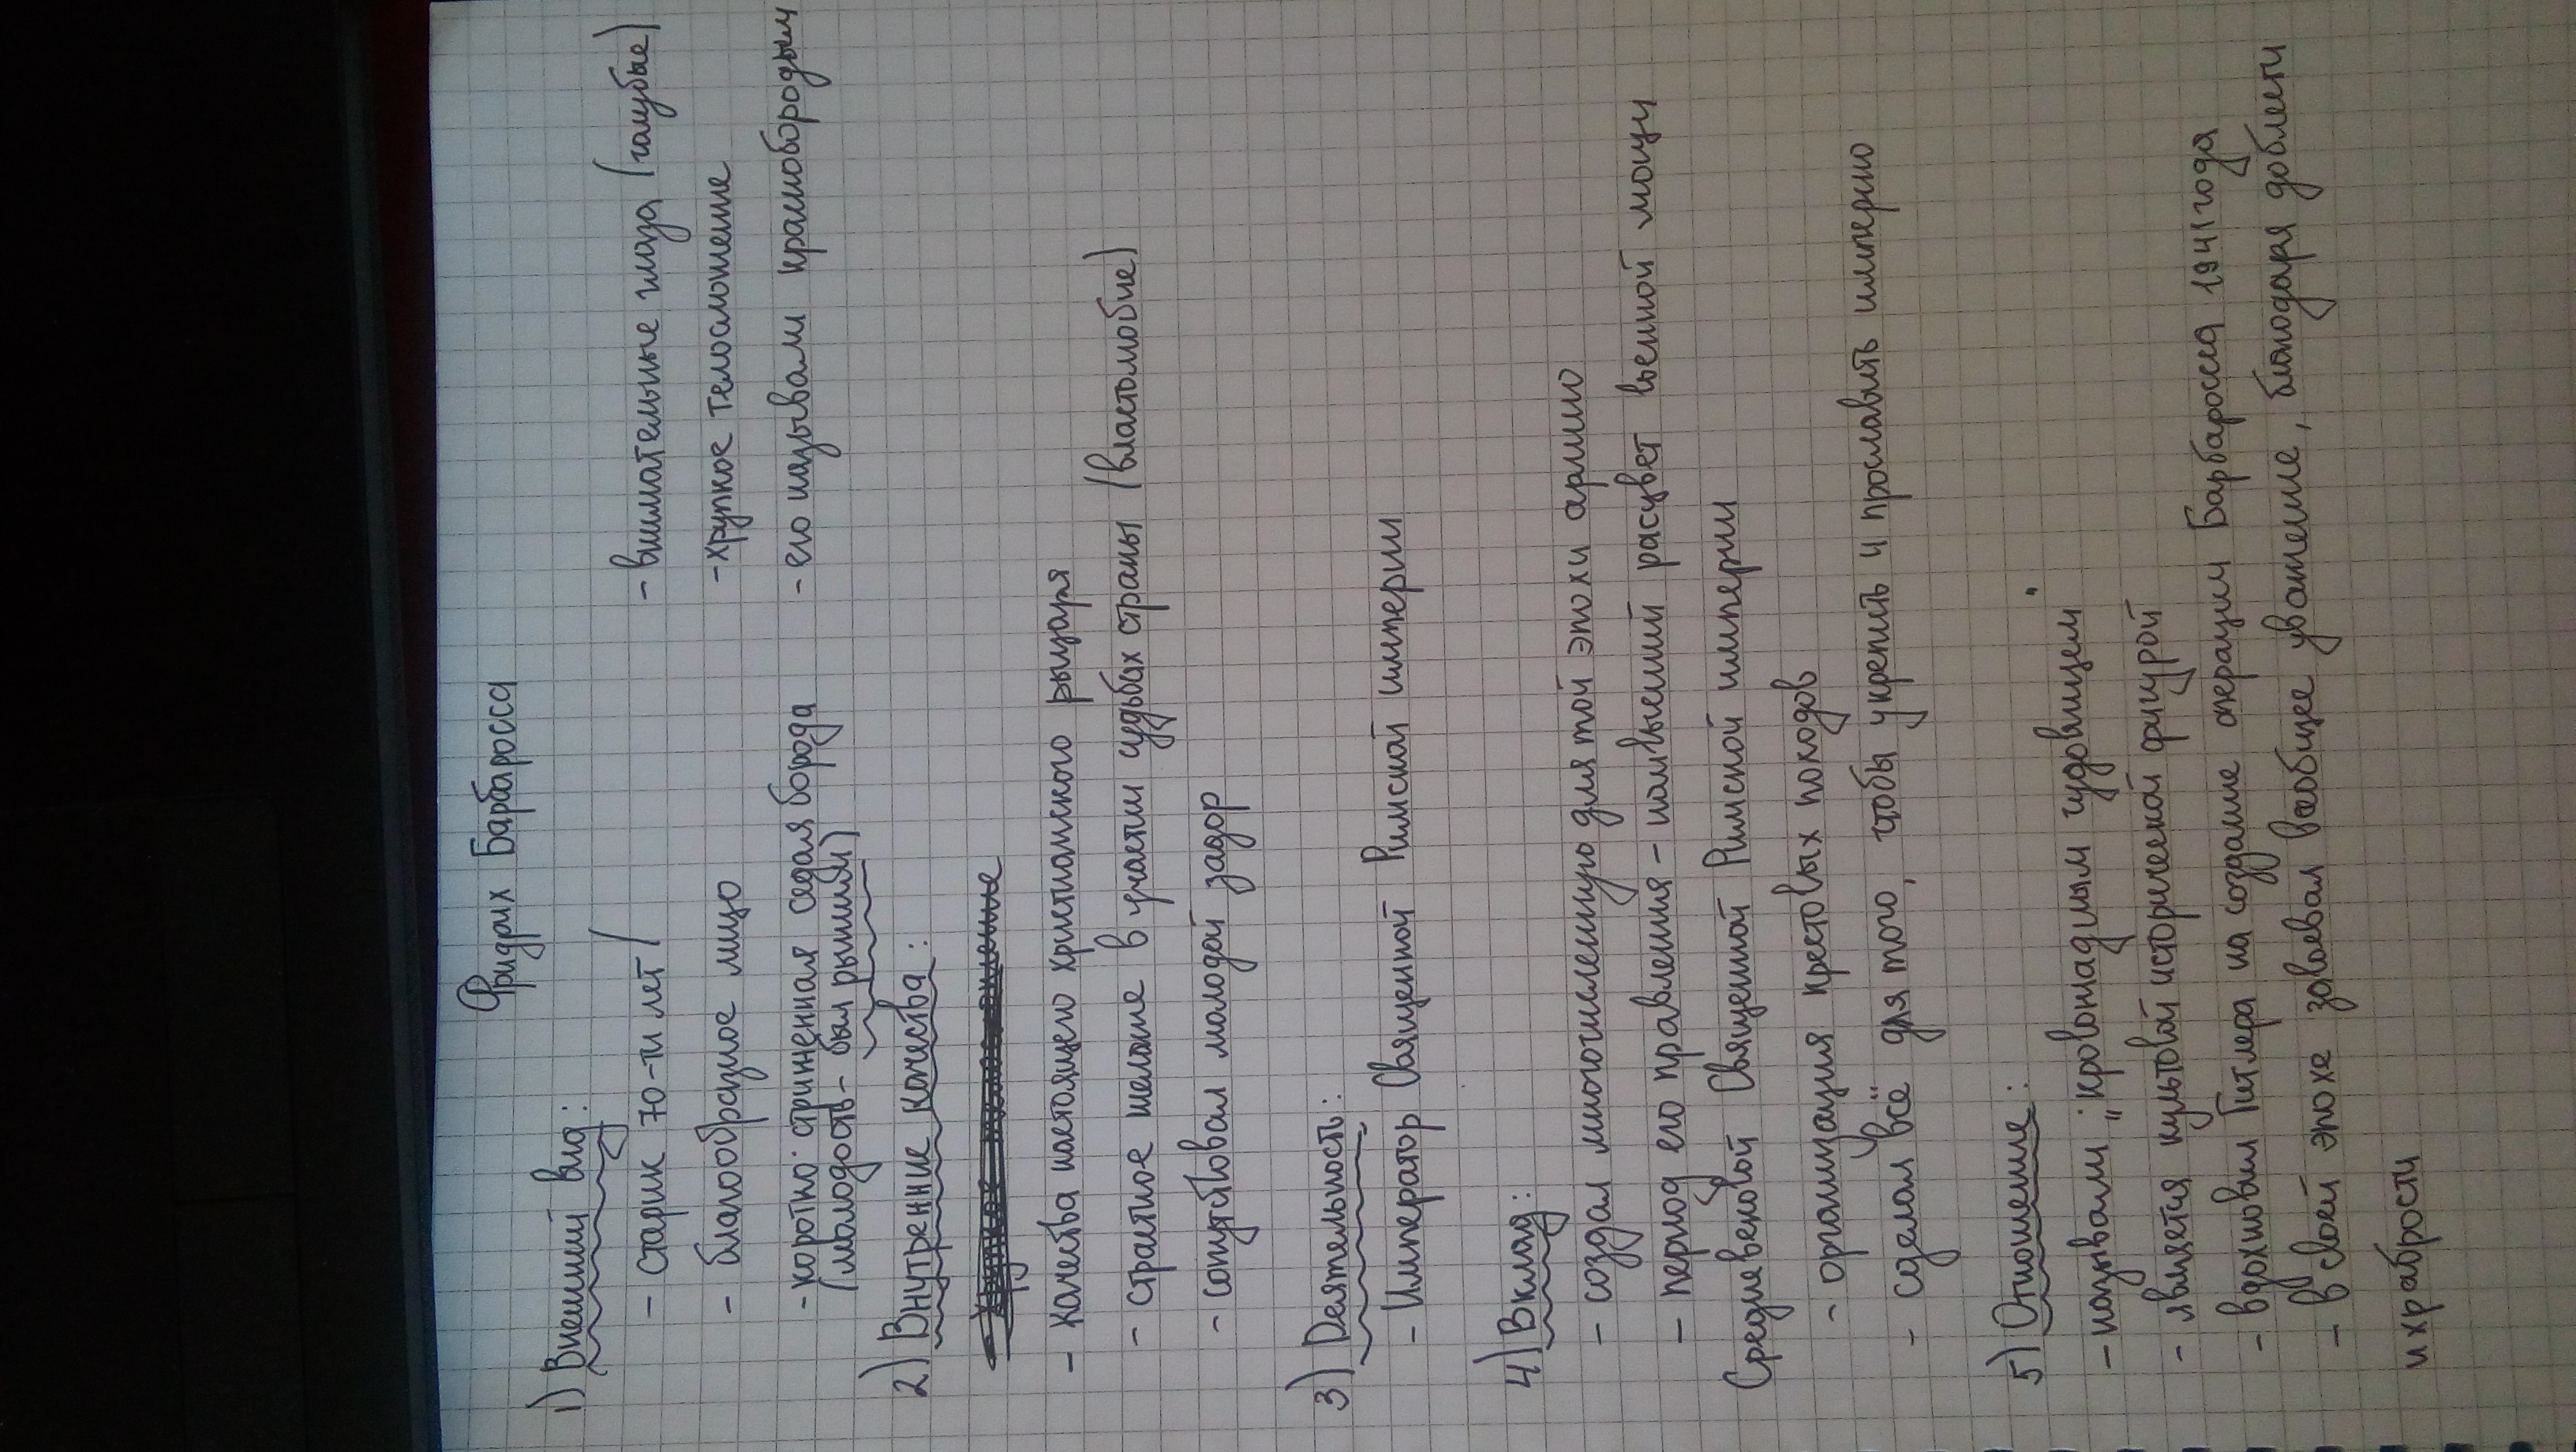 Фридрих Барбаросса
1) Внешний вид:
- старик 70-ти лет / - внимательные глаза (голубые)
- благообразное лицо - хрупкое телосложение
- коротко стриженная седая борода - его называли краснобородым
(молодость - был рыжим)
2) Внутренние качества:
- качества настоящего христианского рыцаря
- страстное желание в участии судьбах страны (властолюбие)
- сопутствовал молодой задор
3) Деятельность:
- Император Священной Римской империи
4) Вклад:
- создал многочисленную для той эпохи армию
- период его правления - наивысший расцвет военной мощи
Средневековой Священной Римской империи
- организация крестовых походов
- сделал всё для того, чтобы укрепить и прославить империю
5) Отношение:
- называли "кровожадным чудовищем"
- является культовой исторической фигурой
- вдохновил Гитлера на создание операции Барбаросса 1941 года
- в своей эпохе завоевал всеобщее уважение, благодаря доблести
и храбрости